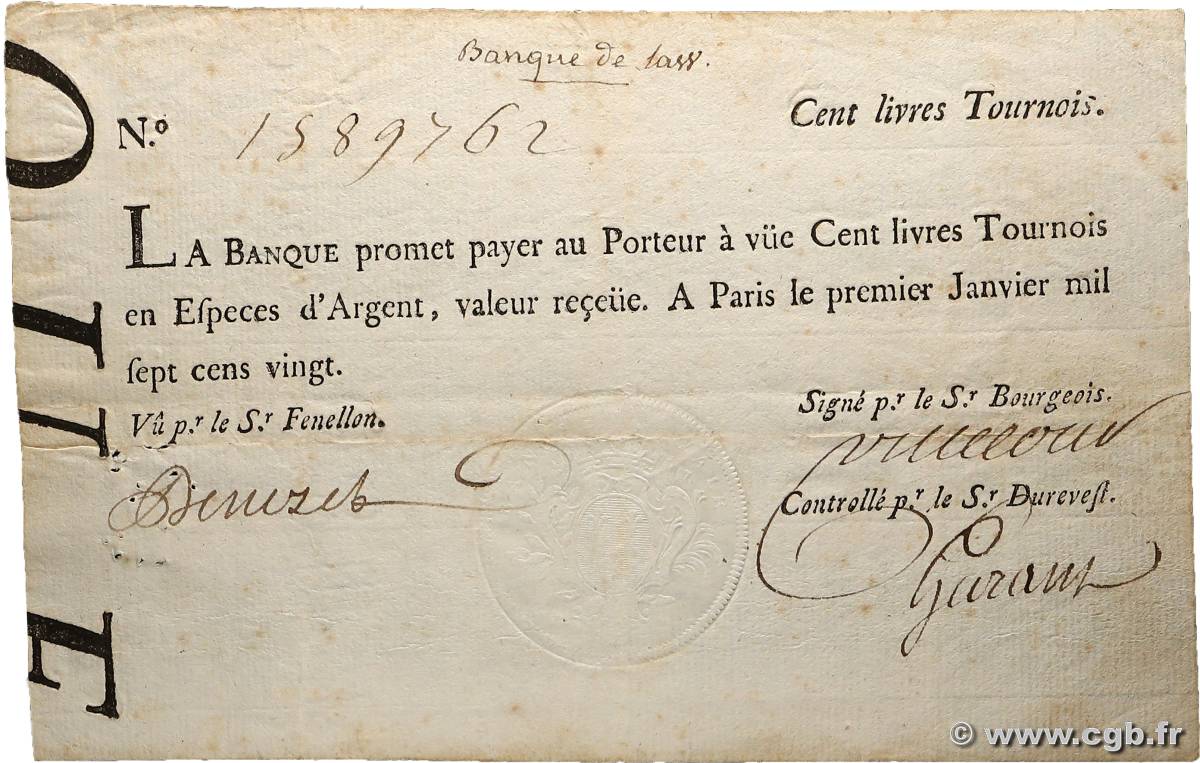 Banque de Law.
Cent livres Tournois.
N.º 1589762
LA BANQUE promet payer au Porteur à vüe Cent livres Tournois
en Eſpeces d'Argent, valeur reçeüe. A Paris le premier Janvier mil
ſept cens vingt.
Vû p.r le S.r Fenellon.
Signé p.r le S.r Bourgeois.
Controllé p.r le S.r Dureveſt.
Granet
© www.cgb.fr